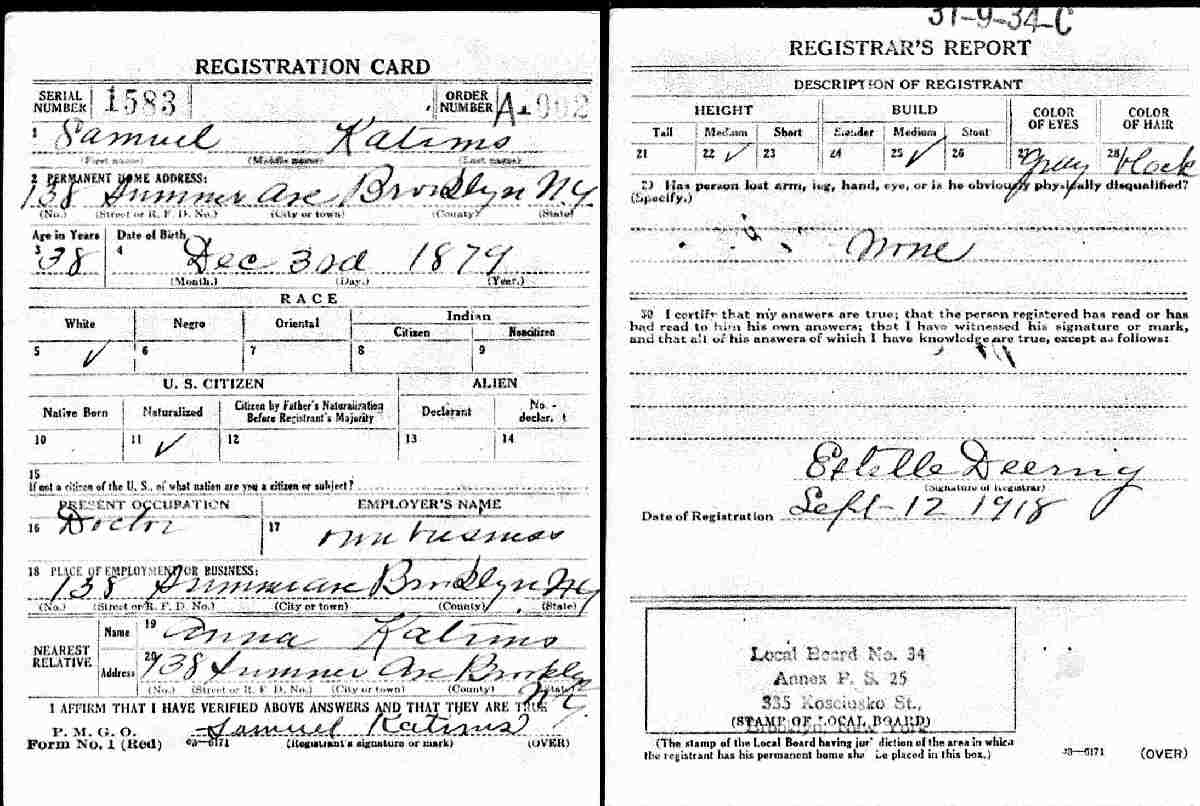 REGISTRATION CARD
SERIAL NUMBER 1583 ORDER NUMBER A-1902
1 Samuel Katims
(First name) (Middle name) (Last name)
2 PERMANENT HOME ADDRESS:
138 Sumner Ave Brooklyn N.Y.
(No.) (Street or R. F. D. No.) (City or town) (County) (State)
Age in Years Date of Birth
3 38 4 Dec 3rd 1879
(Month.) (Day.) (Year.)
RACE
White Negro Oriental Indian
Citizen Noncitizen
5 ✓ 6 7 8 9
U. S. CITIZEN ALIEN
Native Born Naturalized Citizen by Father's Naturalization Before Registrant's Majority Declarant No.-declar. t
10 11 ✓ 12 13 14
15
If not a citizen of the U. S., of what nation are you a citizen or subject?
PRESENT OCCUPATION EMPLOYER'S NAME
16 Doctor 17 own business
18 PLACE OF EMPLOYMENT OR BUSINESS:
138 Sumner Ave Brooklyn NY
(No.) (Street or R. F. D. No.) (City or town) (County) (State)
NEAREST RELATIVE Name 19 Anna Katims
Address 20 138 Sumner Ave Brooklyn N.Y.
(No.) (Street or R. F. D. No.) (City or town) (County) (State)
I AFFIRM THAT I HAVE VERIFIED ABOVE ANSWERS AND THAT THEY ARE TRUE
P. M. G. O.
Form No. 1 (Red) 03—6171 Samuel Katims
(Registrant's signature or mark) (OVER)
31-9-34-C
REGISTRAR'S REPORT
DESCRIPTION OF REGISTRANT
HEIGHT BUILD COLOR OF EYES COLOR OF HAIR
Tall Medium Short Slender Medium Stout
21 22 ✓ 23 24 25 ✓ 26 27 Gray 28 black
29 Has person lost arm, leg, hand, eye, or is he obviously physically disqualified?
(Specify.)
None
30 I certify that my answers are true; that the person registered has read or has
had read to him his own answers; that I have witnessed his signature or mark,
and that all of his answers of which I have knowledge are true, except as follows:
Estelle Deering
(Signature of Registrar)
Date of Registration Sept-12 1918
Local Board No. 34
Annex P. S. 25
335 Kosciusko St.,
(STAMP OF LOCAL BOARD)
Brooklyn, New York
(The stamp of the Local Board having jur diction of the area in which
the registrant has his permanent home sha be placed in this box.)
03—6171 (OVER)